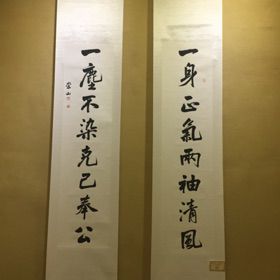 一身正氣兩袖清風
一塵不染克己奉公